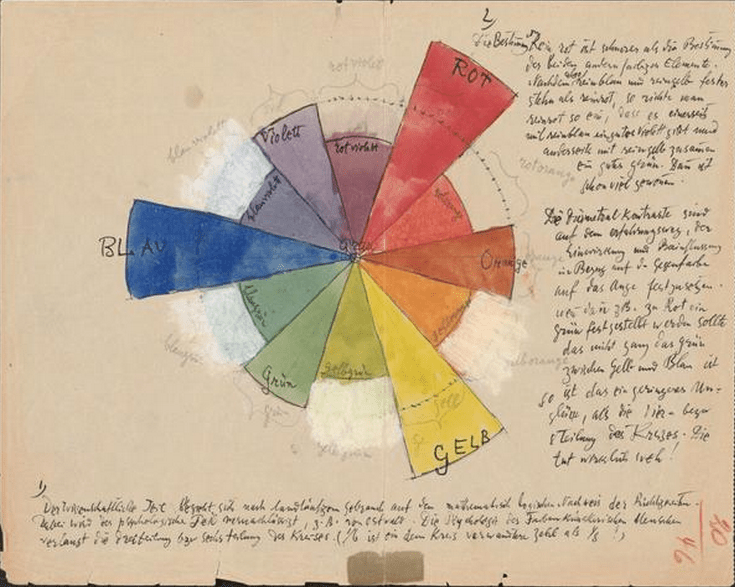 2)
Die Bestimmung von Rein rot ist schwerer als die Bestimmung
der beiden andern farbigen Elemente.
Nachdem aber reinblau und reingelb fester
stehn als reinrot, so richte man
reinrot so ein, dass es einerseits
mit reinblau ein gutes Violett gibt und
anderseits mit reingelb zusammen
ein gutes
schon viel gewonnen.
Die Diametral Kontraste sind
auf dem erfahrungsweg, der
Einwirkung und Beeinflussung
in Bezug auf die Gegenfarbe
auf das Auge festzusetzen.
wenn dann z.B. zu Rot ein
grün festgestellt werden sollte
das nicht ganz das grün
zwischen Gelb und Blau ist
so ist das ein geringeres Un-
glück, als die
teilung des Kreises. Die
tut wirklich weh!
ROT
Violett
rotviolett
blauviolett
rotorange
BLAU
Orange
blaugrün
Grün
gelbgrün
gelb
GELB
blauviolett
rotorange
orange
gelborange
blaugrün
grün
gelbgrün
1)
Der wissenschaftliche Teil bezieht sich nach landläufigem gebrauch auf den mathematisch logischen Nachweis der Richtigkeiten.
Dabei wird das psychologische Teil vernachlässigt, z.B. von Ostwald. Die Psychologie des Farbenkünstlerischen Menschen
verlangt die dreiteilung bzw sechsteilung des Kreises. ist ein dem Kreis verwandtere Zahl als